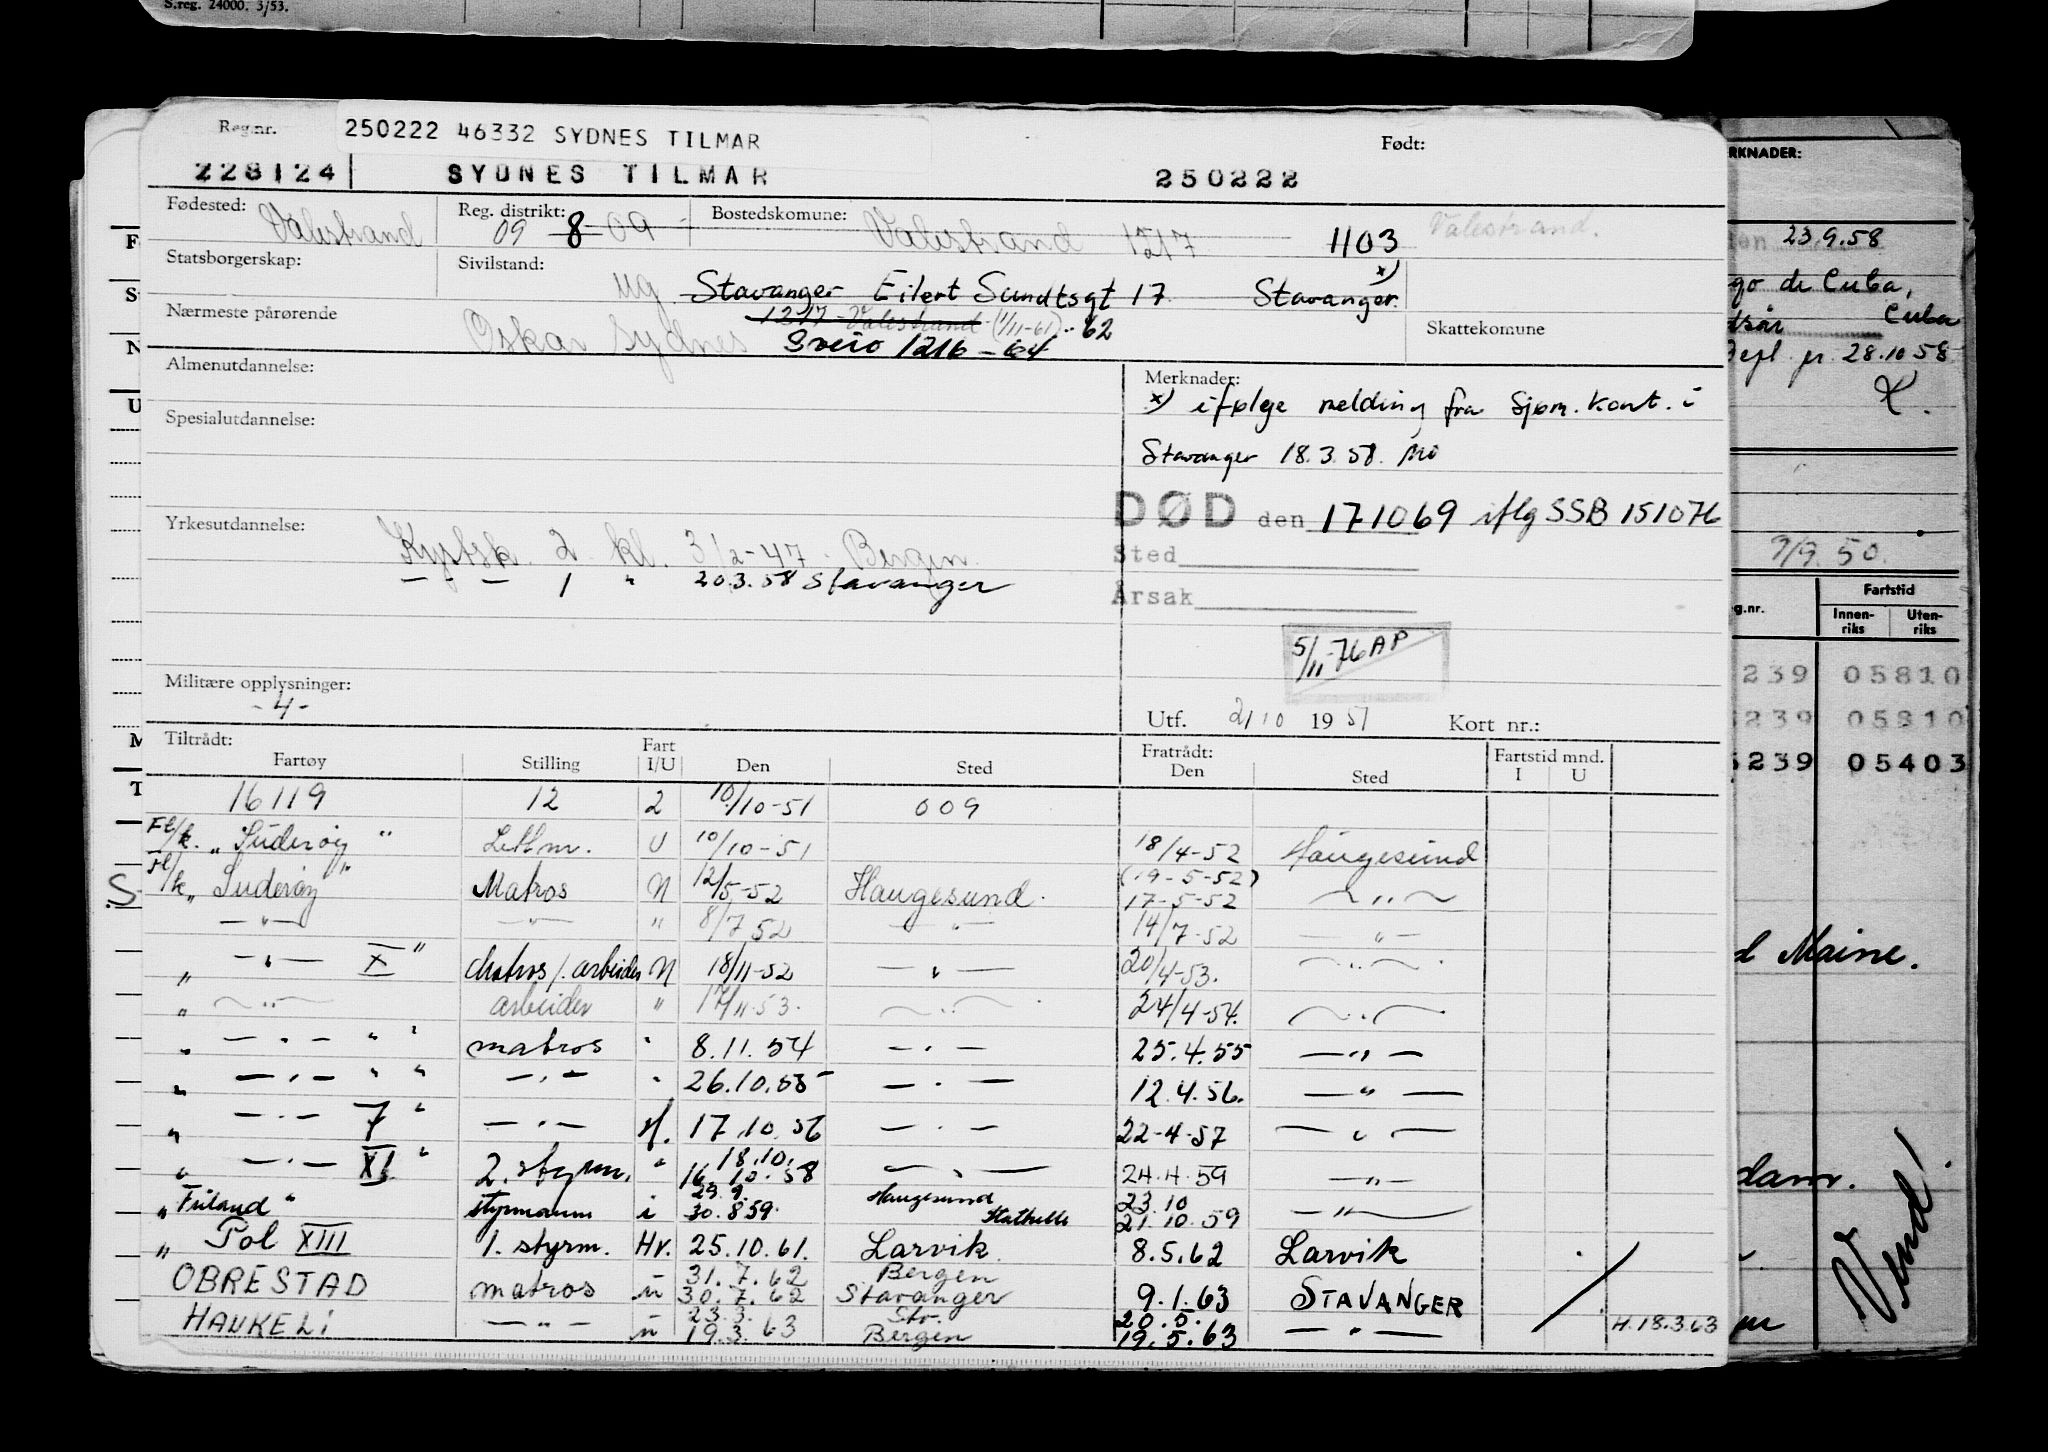 S.reg. 24000. 3/53.
Reg.nr. 250222 46332 SYDNES TILMAR Født:
228124 SYDNES TILMAR 250222
Fødested: Valestrand Reg. distrikt: 09 8 - 09 - Bostedskomune: Valestrand 1217 1103 Valestrand.
Statsborgerskap: Sivilstand: ug Stavanger Eilert Sundtsgt 17 Stavanger. x)
Nærmeste pårørende Oskar Sydnes 1217 Valestrand (1/11-61) - 62 Skattekomune
Sveio 1216 - 64
Almenutdannelse: Merknader:
x) ifølge melding fra Sjøm. kont. i
Spesialutdannelse:
Stavanger 18.3.58. Mo
DØD den 171069 iflg SSB 151076
Yrkesutdannelse: Kystsk. 2 kl. 3 1/2-47 Bergen
Sted
— - — 1 " 20.3.58 Stavanger
Årsak
5/11-76 AP
Militære opplysninger:
- 4 -
Utf. 2/10 1951 Kort nr.:
Tiltrådt: Fratrådt:
Fartøy Stilling Fart I/U Den Sted Den Sted Fartstid mnd. I U
16119 12 2 10/10-51 009
Fl/k. "Suderøy" Lettm. U 10/10-51 18/4-52 Haugesund
Fl/k "Suderøy" Matros N 12/5-52 Haugesund. (19-5-52) 17-5-52 — " —
— " — — " — " 8/7 52 — " — 14/7-52 — " —
" — " — X " Matros/. arbeider N 18/11-52 — " — 20/4-53. — " —
" — " — arbeider " 17/11-53. — " — 24/4-54. — " —
" — " — " " matros " 8.11.54 — " — 25.4.55 — " —
" — " — " " — " — " 26.10.55 — " — 12.4.56. — " —
" — " — 7 " — " — H. 17.10.56 — " — 22-4-57 — " —
" — " — XI " 2. styrm. " 18.10. 16.10.58 — " — 24.4.59 — " —
" Friland " styrmann i 29.9. 30.8.59. Haugesund Stathelle 23.10 21.10.59 — " —
" Pol XIII 1. styrm. Hv. 25.10.61. Larvik. 8.5.62 Larvik
OBRESTAD matros u 31.7.62 30.7.62 Bergen Stavanger 9.1.63 STAVANGER
HAUKELI — " — u 23.3. 19.3.63 Stv. Bergen 20.5. 19.5.63 — " — H.18.3.63
RKNADER:
23.9.58
go de Cuba,
Cuba
28.10 58
9/9. 50.
g.nr. Fartstid
Innen-riks Uten-riks
239 05810
239 05810
5239 05403
d Maine.
dam.
Vend!